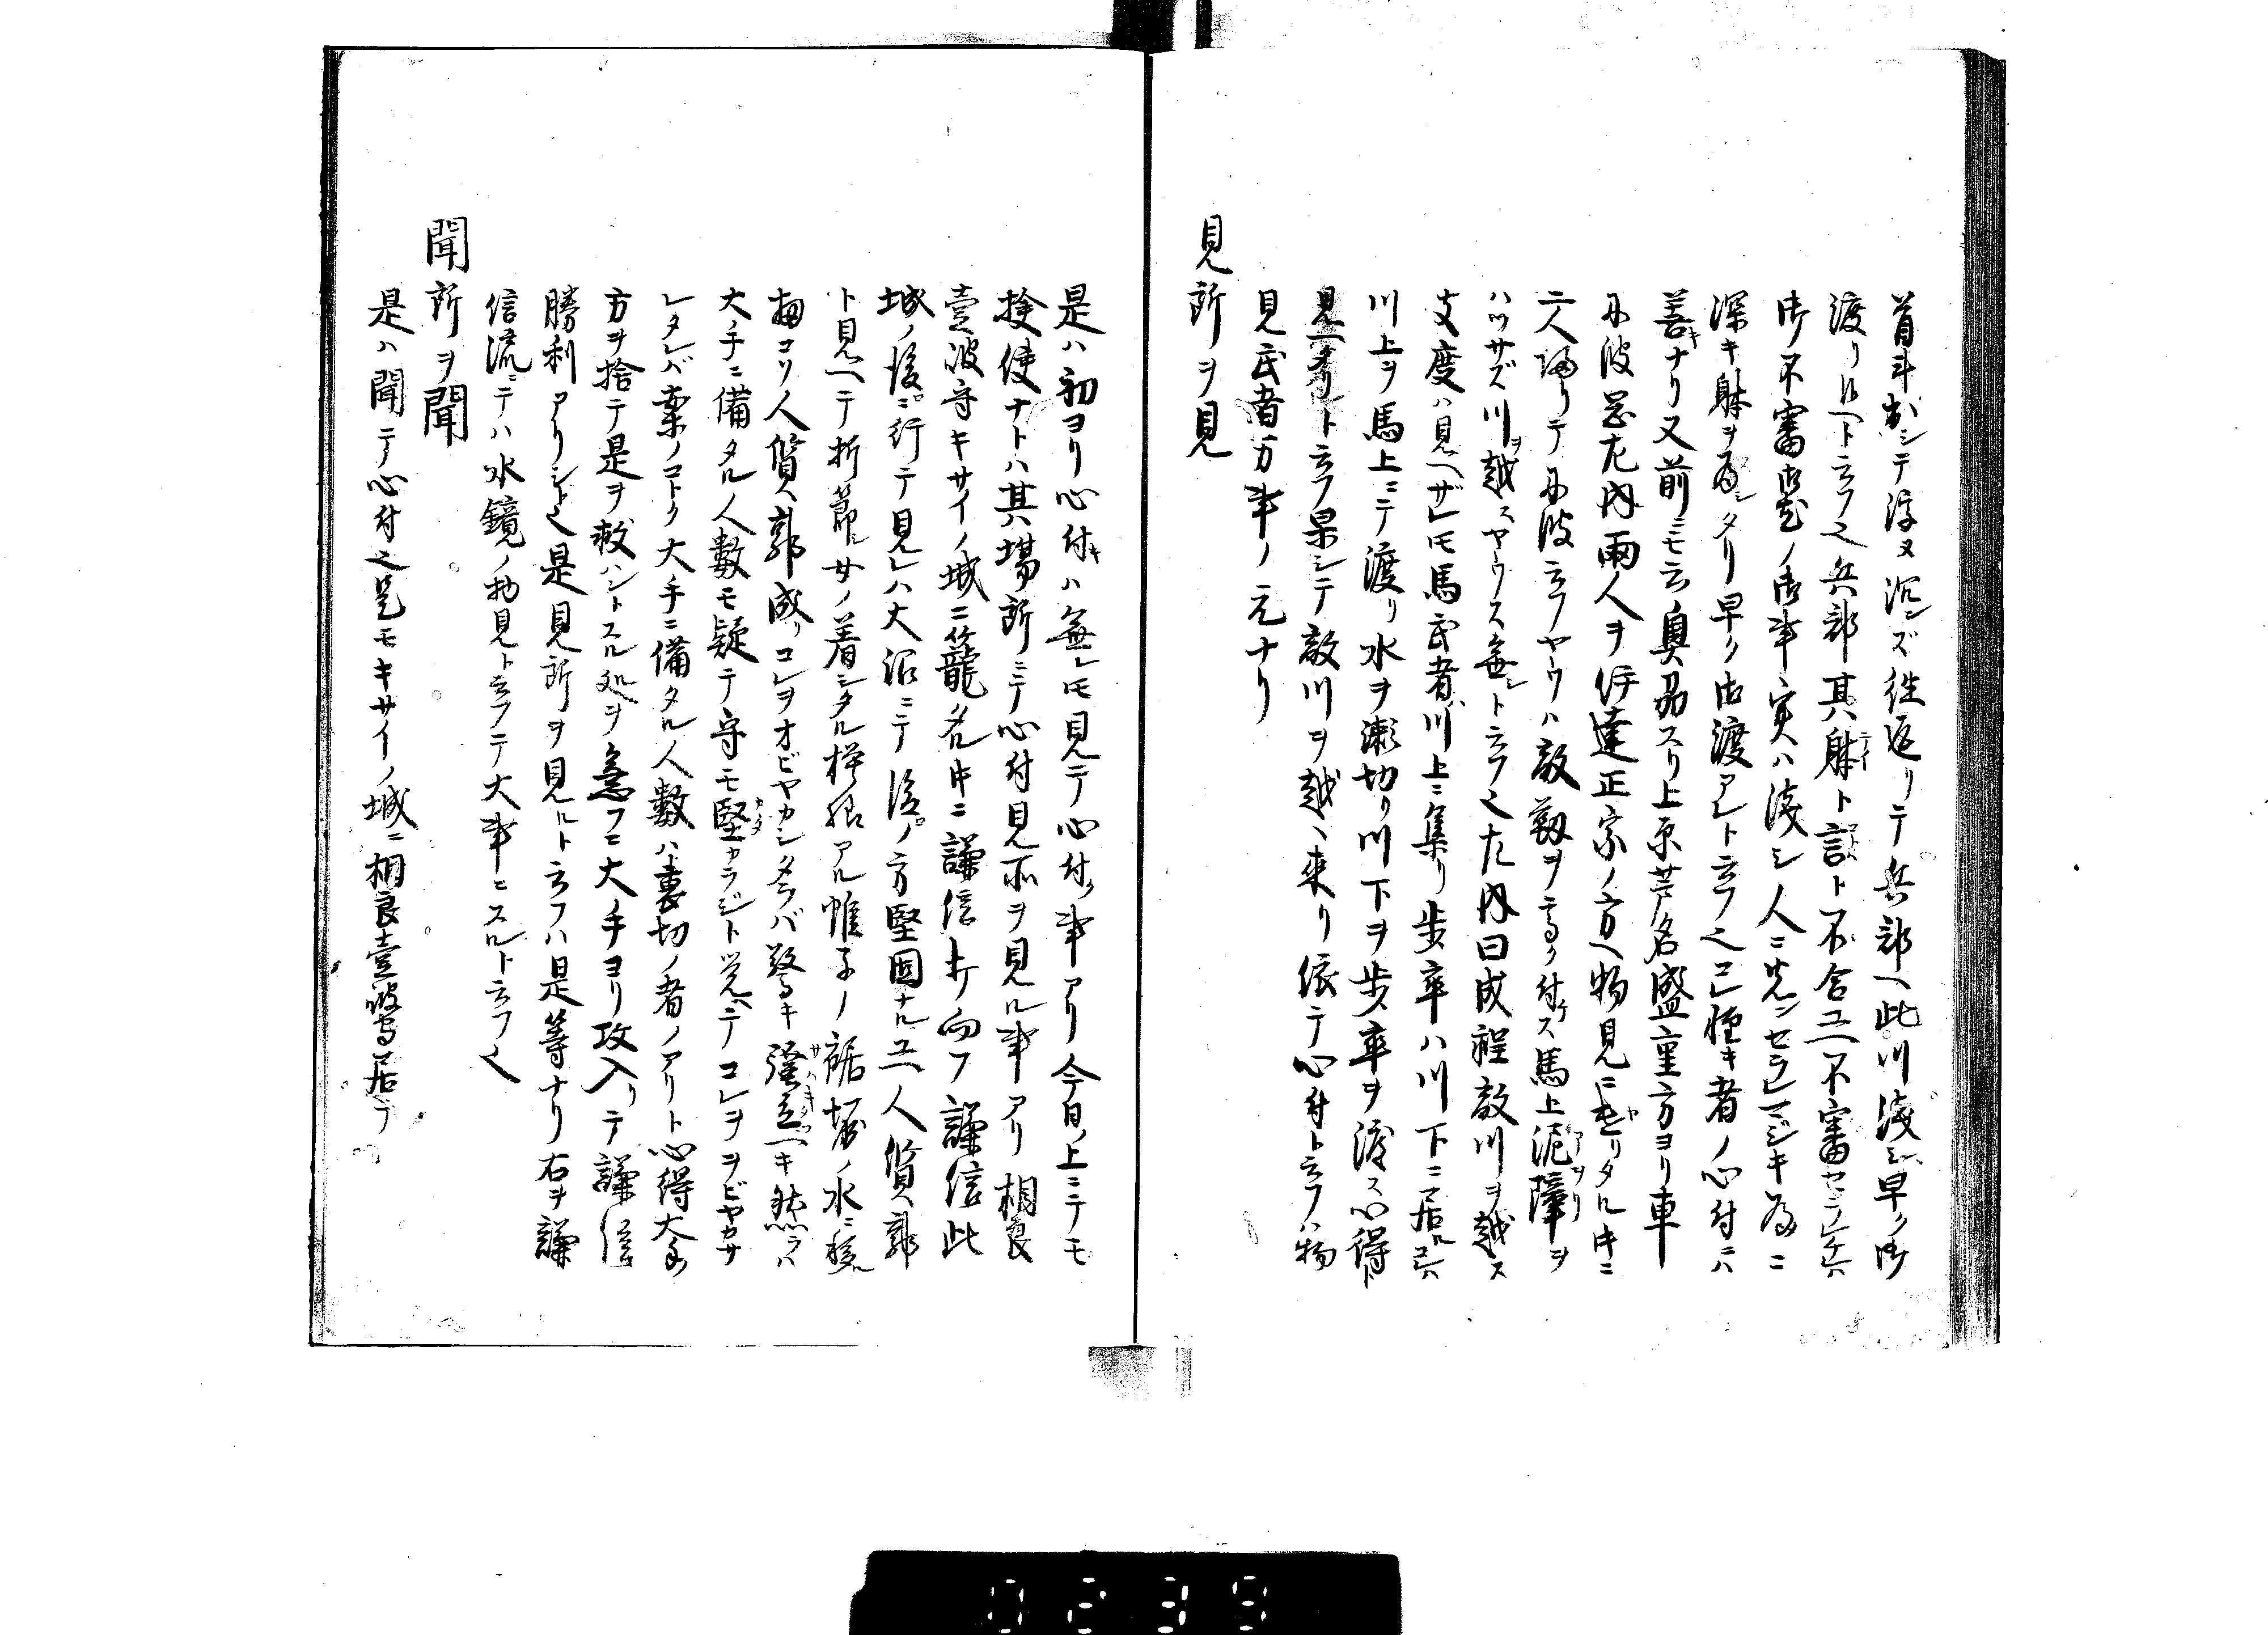 首斗出シテ浮ヌ沉シズ徃返リテ兵部ヘ此川淺シ早ク御
渡リ候ヘト云フ也兵部其躰ト言ト不合ユヘ不審セラレケレハ
御不審御尤ノ御事実ハ淺シ人ニ先ンセラレマジキ為ニ
深キ躰ヲ為シタリ早ク御渡アレト云フ也コレ怪キ者ノ心付ニハ
善キナリ又前ニモ云奥劦スリ上原芦名盛重方ヨリ車
丹波笠左内両人ヲ伊達正宗ノ方ヘ物見ニ遣リタル时ニ
二人帰リテ丹波云フヤウハ敵靱ヲ高ク付ケス馬上泥障ヲ
ハツサズ川ヲ越スヤウス無シト云フ也左内曰成程敵川ヲ越ス
支度ハ見ヘザレ圧馬武者川上ニ集リ歩卒ハ川下ニ居ルコレハ
川上ヲ馬上ニテ渡リ水ヲ瀬切リ川下ヲ歩卒ヲ渡ス心得ト
見ヘタリト云フ果シテ敵川ヲ越ヘ来リ依テ心付ト云フハ物
見武者ノ万事ノ元ナリ
見所ヲ見
是ハ初ヨリ心付キハ無レ圧見テ心付ク事アリ今日ノ上ニテモ
捡使ナトハ其場所ニテ心付見所ヲ見ル事アリ相良
壹波守キサイノ城ニ篭タル时ニ謙信押向フ謙信此
城ノ後ロニ行テ見レハ大沼ニテ後ロノ方堅固ナルユヘ人質郭
ト見ヘテ折節女ノ着シタル模様アル帷子ノ裾堀ノ水ニ移ル
扨コソ人質郭成リコレヲオビヤカシタラバ驚キ強立ヘキ然ラハ
大手ニ備タル人数モ疑テ守モ堅カラジト覚ヘテコレヲヲビヤカサ
レタレバ案ノコトク大手ニ備タル人数ハ裏切ノ者ノアリト心得大手ノ
方ヲ捨テ是ヲ救ハントスル処ヲ急フニ大手ヨリ攻入リテ謙信
勝利アリシト也是見所ヲ見ルト云フハ是等ナリ右ヲ謙
信流ニテハ水鏡ノ物見ト云フテ大事ニスルト云フ也
聞所ヲ聞
是ハ聞テ心付也是モキサイノ城ニ相良壹岐守居テ